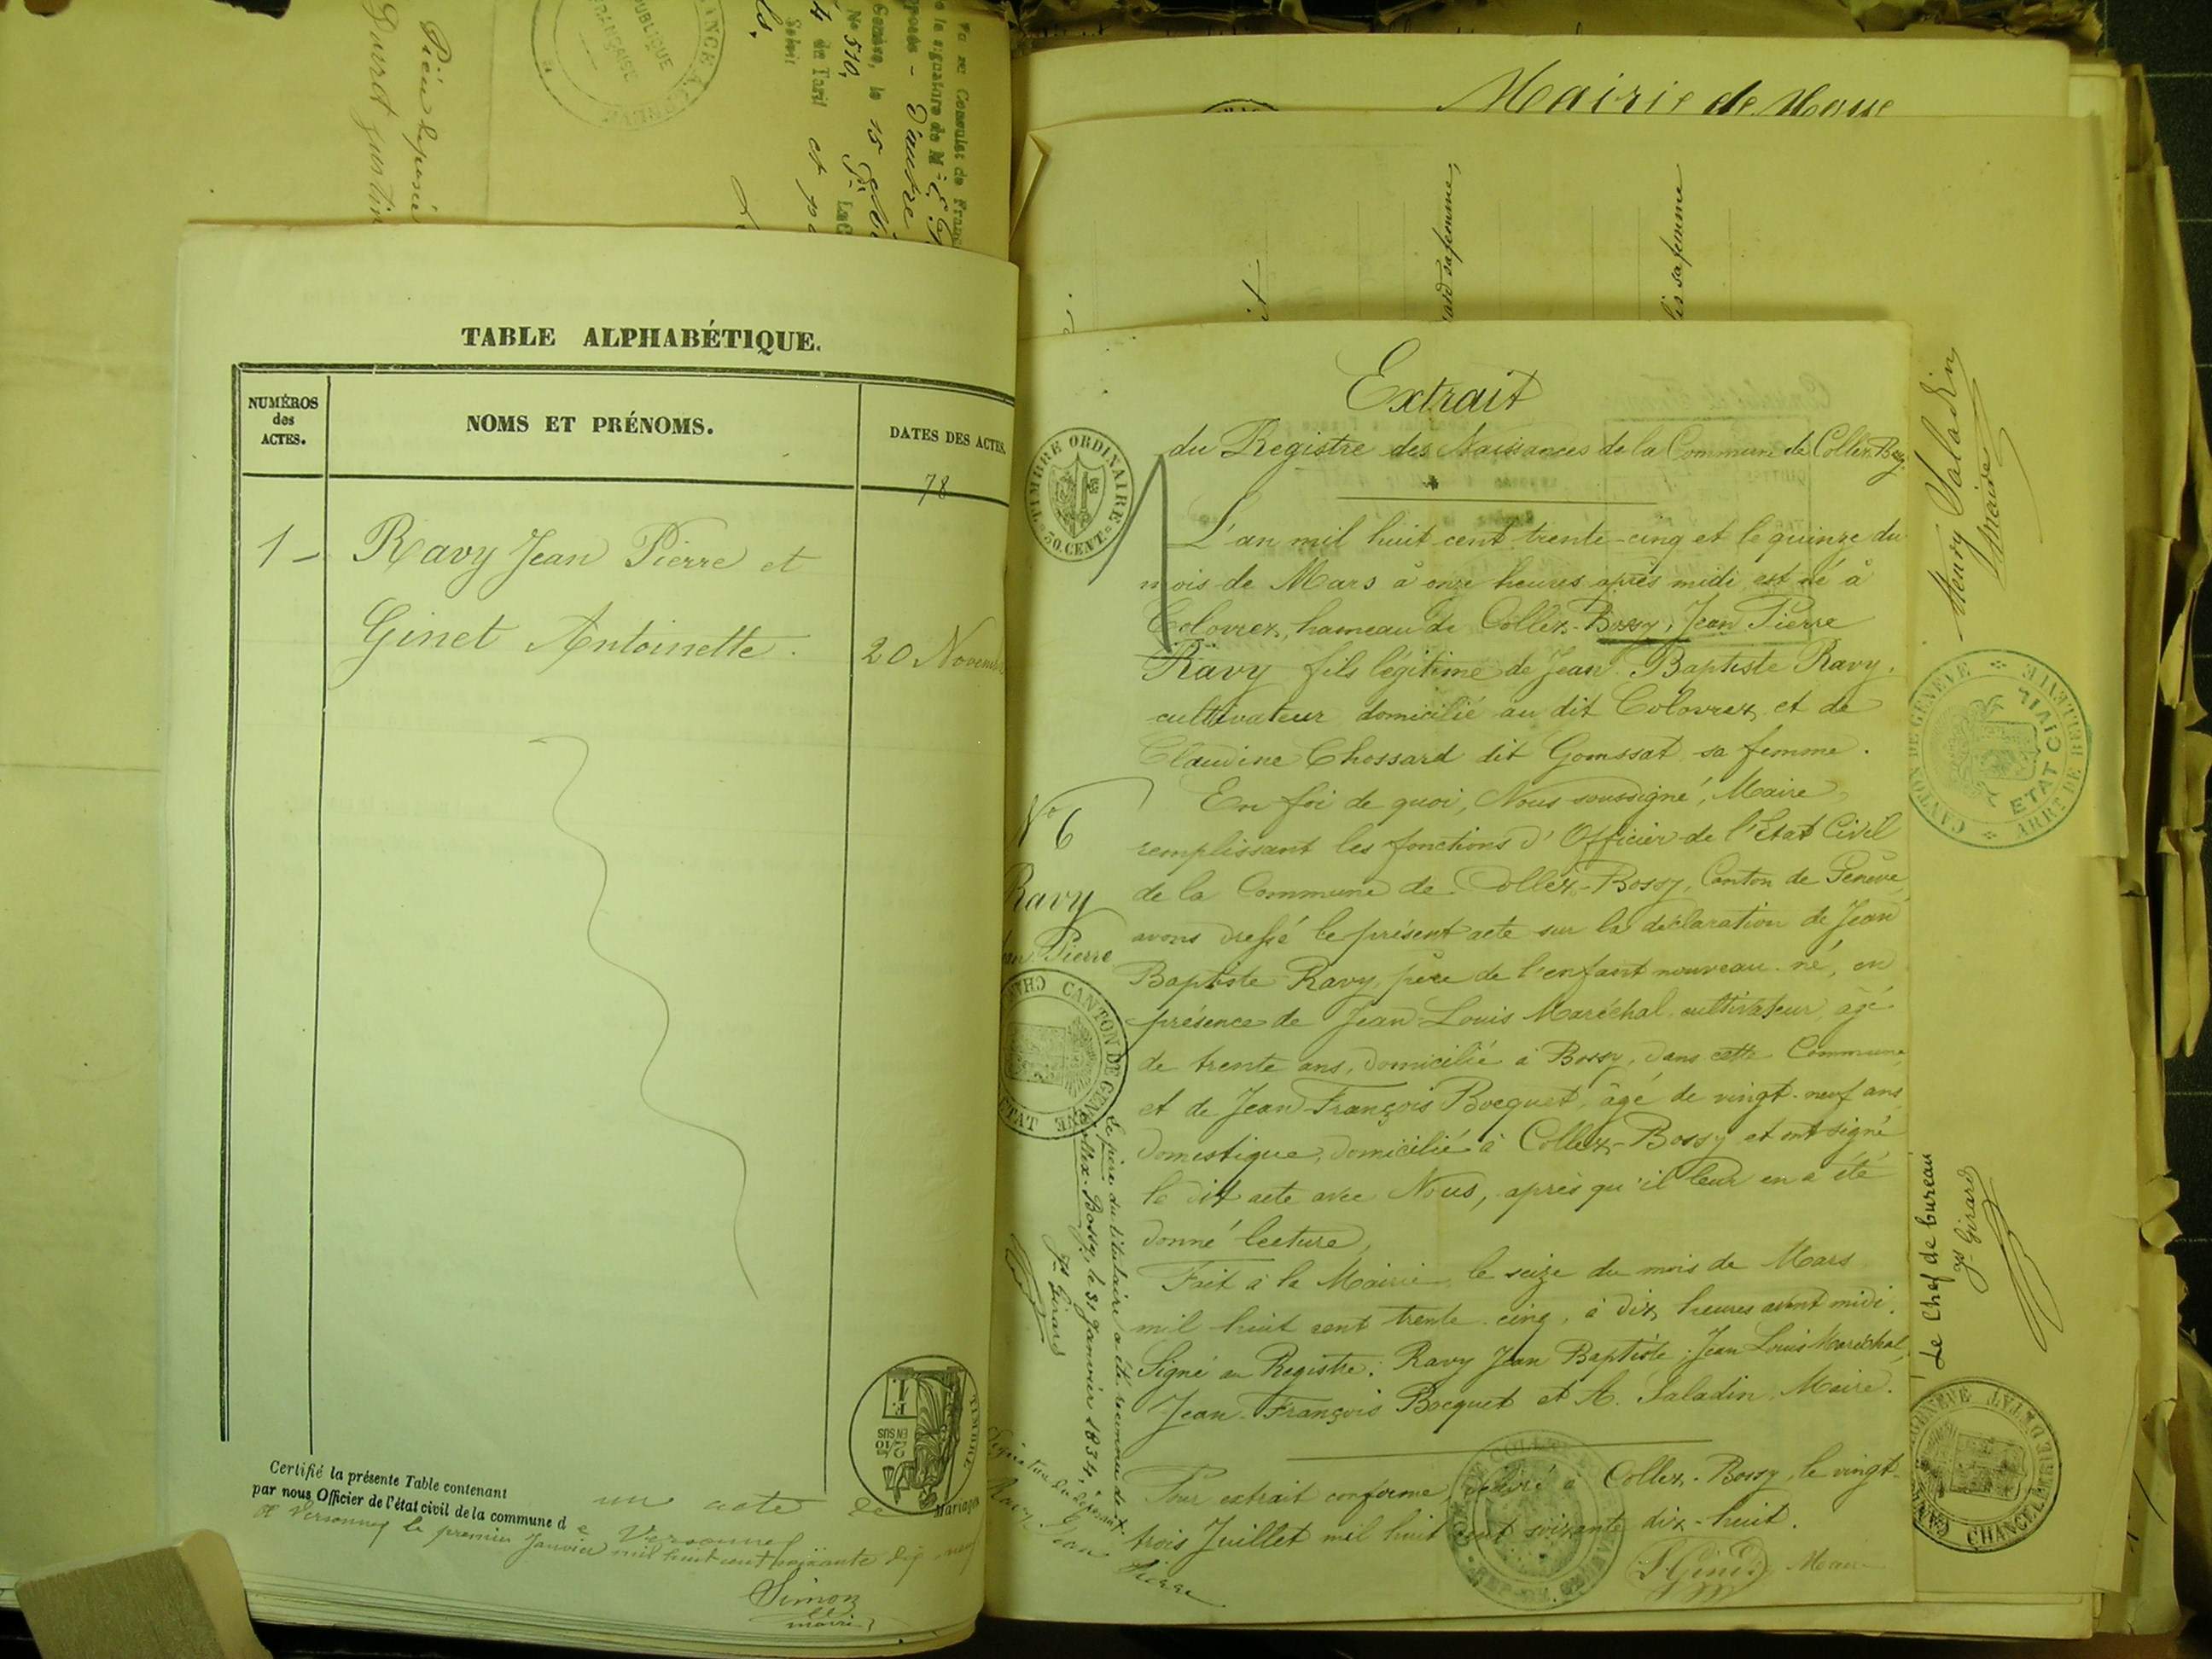 Pièce déposée
Duret Justin
RÉPUBLIQUE
FRANÇAISE
Vu au Consulat de Franc
la signature de M
apposée - d'autre
Genève, le 15
No 510,
du Tarif et
TABLE ALPHABÉTIQUE.
NUMÉROS
des
ACTES.
NOMS ET PRÉNOMS.
DATES DES ACTES.
78
1 - Ravy Jean Pierre et
Ginet Antoinette. 20 Novem
Certifié la présente Table contenant un acte de Mariage
par nous Officier de l'état civil de la commune de Versonnex
A Versonnex le premier Janvier mil huit cent soixante dix neuf
Simon
maire
TIMBRE
2/10
EN SUS
Mairie de
sa femme,
sa femme
Extrait
du Registre des Naissances de la Commune de Collex-Bossy.
TIMBRE ORDINAIRE
30 CENT.
L'an mil huit cent trente-cinq et le quinze du
mois de Mars à onze heures après midi est né à
Colovrex, hameau de Collex-Bossy, Jean Pierre
Ravy fils légitime de Jean Baptiste Ravy,
cultivateur domicilié au dit Colovrex et de
Claudine Chossard dit Gonssat sa femme.
En foi de quoi, Nous soussigné, Maire
remplissant les fonctions d'Officier de l'Etat Civil
de la Commune de Collex-Bossy, Canton de Genève,
avons dressé le présent acte sur la déclaration de Jean
Baptiste Ravy, père de l'enfant nouveau-né, en
présence de Jean-Louis Maréchal cultivateur, âgé
de trente ans, domicilié à Bossy, dans cette Commune
et de Jean-François Bocquet, âgé de vingt-neuf ans
domestique, domicilié à Collex-Bossy et ont signé
le dit acte avec Nous, après qu'il leur en a été
donné lecture.
Fait à la Mairie le seize du mois de Mars
mil huit cent trente cinq, à dix heures avant midi.
Signé au Registre: Ravy Jean Baptiste; Jean Louis Maréchal,
Jean-François Bocquet et A. Saladin, Maire.
Pour extrait conforme, délivré à Collex-Bossy, le vingt-
trois Juillet mil huit cent soixante dix-huit.
Maire
No 6
Ravy
Jean Pierre
CANTON DE GENÈVE
Le père du titulaire a été reconnu
Collex-Bossy, le 31 Janvier 1834.
Js Girard
Signature du déposant
Ravy Jean
Pierre
Henry Saladin
Maire
CANTON DE GENÈVE
ARRT DE BELLEVUE
ETAT CIVIL
Le Chef de bureau
Js Girard
CHANCELLERIE D'ETAT